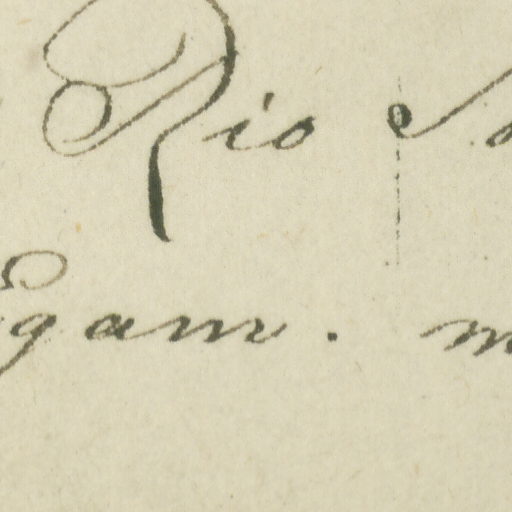 Rio
Egam. m